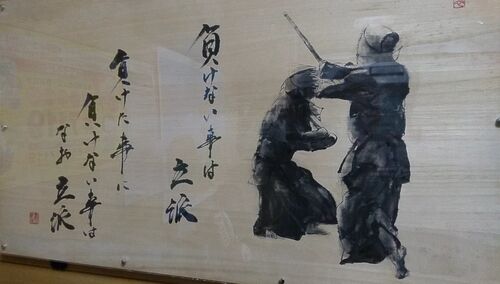 負けない事は
立派
負けた事に
負けない事は
なお立派